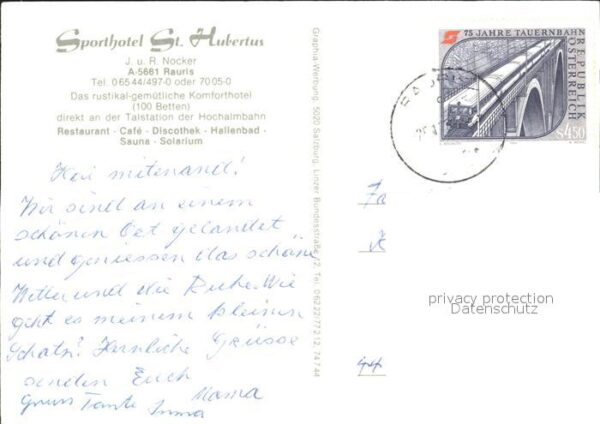 Sporthotel St. Hubertus
J. u. R. Nocker
A-5661 Rauris
Tel. 06544/497-0 oder 7005-0
Das rustikal-gemütliche Komforthotel
(100 Betten)
direkt an der Talstation der Hochalmbahn
Restaurant · Café · Discothek · Hallenbad ·
Sauna · Solarium
Hoi mitenand!
Wir sind an einem
schönen Ort gelandet
und geniessen das schöne
Wetter und die Ruhe. Wie
geht es meinem kleinen
Schatz? Herzliche Grüsse
senden Euch
Mama
Gruss Tante
Irma
Graphia-Werbung, 5020 Salzburg, Linzer Bundesstraße 2, Tel. 06222/77212, 74744
75 JAHRE TAUERNBAHN
REPUBLIK
ÖSTERREICH
S4.50
Fa
privacy protection
Datenschutz